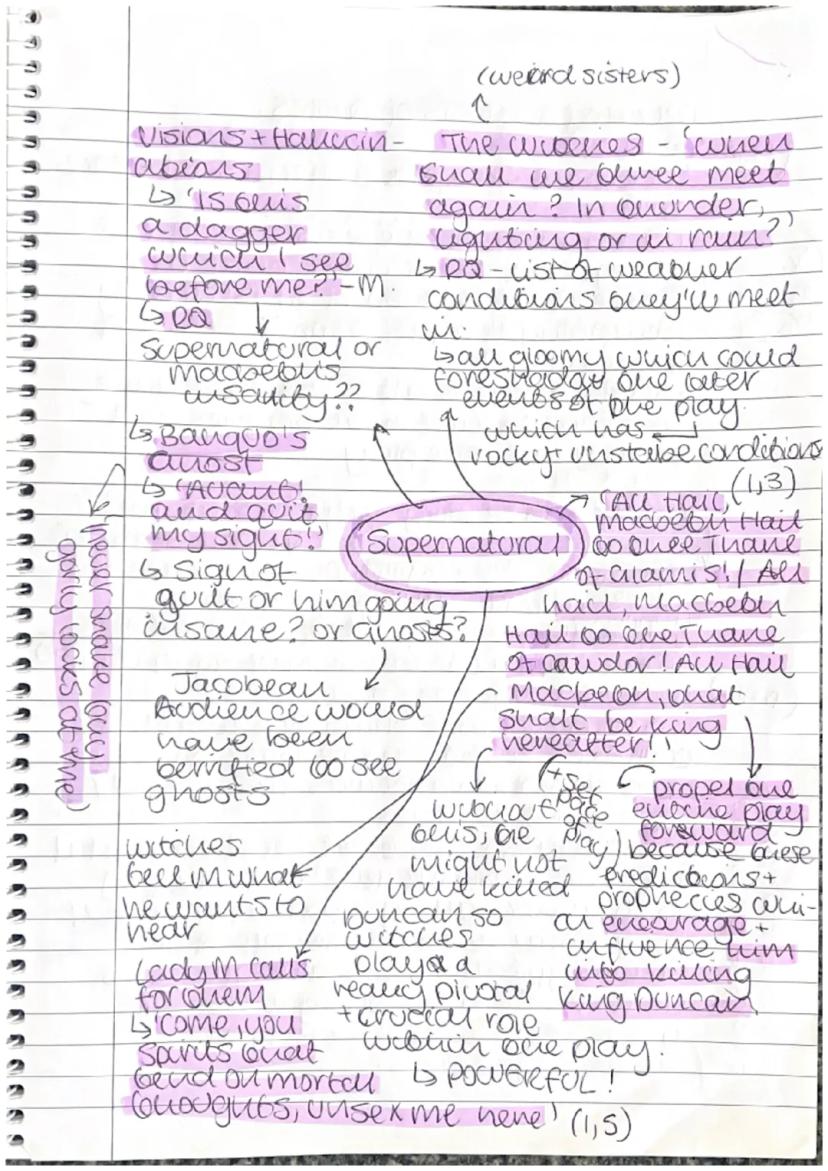 (weird sisters)
Visions + Hallucin-
ations
↳ 'Is this
a dagger
which I see
before me?' - M.
↳ RQ
Supernatural or
Macbeth's
insanity??
↳ Banquo's
Ghost
↳ 'Avaunt!
and quit
my sight!'
↳ Sign of
guilt or him going
insane? or Ghosts?
Jacobean
Audience would
have been
terrified to see
ghosts
'never shake thy
gorly locks at me'
The witches - 'when
shall we three meet
again? In thunder,
lighting or in rain?'
↳ RQ - list of weather
conditions they'll meet
in.
↳ all gloomy which could
foreshadow the later
events of the play.
which has
rocky + unstable conditions
Supernatural
'All Hail, (1,3)
Macbeth Hail
to thee Thane
of Glamis! / All
hail, Macbeth
Hail to the Thane
of Cawdor! All Hail
Macbeth, that
shalt be king
hereafter!'
propel the
entire play
forward
(+ set
pace
of
play)
because these
predictions +
prophecies whi-
ch encourage +
influence him
into killing
King Duncan
without
this, he
might not
have killed
Duncan so
witches
played a
really pivotal
+ crucial role
within the play.
↳ POWERFUL!
witches
tell M what
he wants to
hear
Lady M calls
for them
↳ 'come, you
spirits that
tend on mortal
thoughts, unsex me here' (1,5)